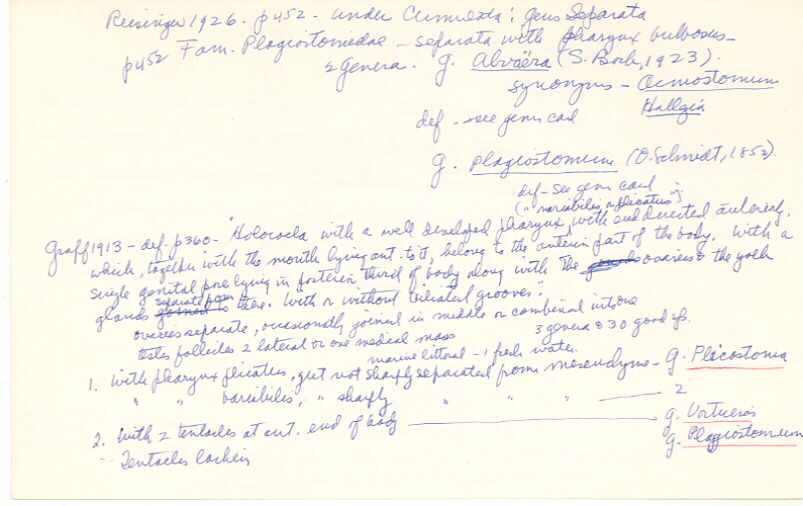 Reisinger 1926. p452 - under Cumulata: gens Separata
p452 Fam. Plagiostomidae - separata with pharynx bulbosus -
2 genera. g. Abvaëra (S. Bock, 1923).
synonyms - Acmostomum
Hallgia
def - see genus card
g. Plagiostomum (O. Schmidt, 1852).
def - see genus card
("variabilis or plicatus")
Graff 1913 - def. p360 - "Holocoela with a well developed pharynx with end directed anteriorly,
which, together with the mouth lying ant. to it, belong to the anterior part of the body. With a
single genital pore lying in posterior third of body along with the ovaries & the yolk
glands separate from these. With or without ciliated grooves".
ovaries separate, occasionally joined in middle or combined into one
testes follicles 2 lateral or one medial mass
3 genera & 30 good sp.
marine littoral - 1 fresh water.
1. With pharynx plicatus, gut not sharply separated from mesenchyme - g. Plicostoma
" " variabilis, " sharply " " " 2
2. With 2 tentacles at ant. end of body g. Vorticeros
- Tentacles lacking g. Plagiostomum